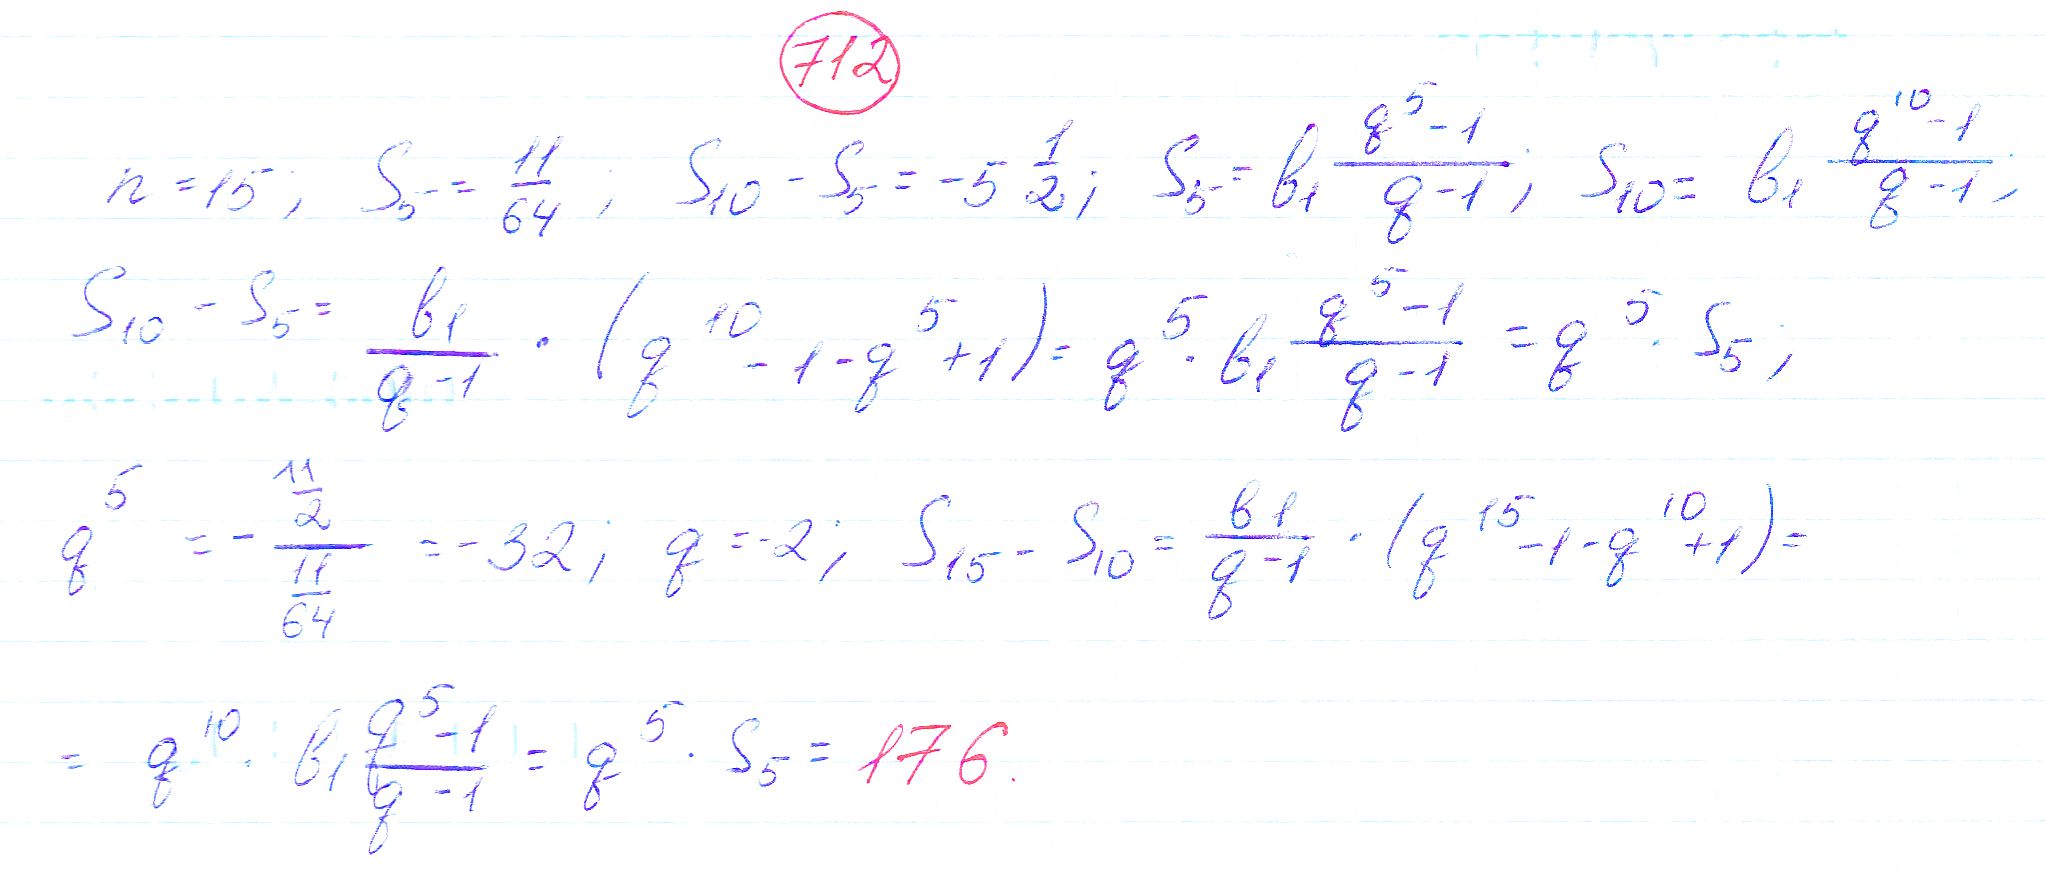 712
n = 15; S₅ = 11/64; S₁₀ - S₅ = -5 1/2; S₅ = b₁ (q⁵-1)/(q-1); S₁₀ = b₁ (q¹⁰-1)/(q-1);
S₁₀ - S₅ = b₁/(q-1) · (q¹⁰-1-q⁵+1) = q⁵ · b₁ (q⁵-1)/(q-1) = q⁵ · S₅;
q⁵ = - (11/2)/(11/64) = -32; q = -2; S₁₅ - S₁₀ = b₁/(q-1) · (q¹⁵-1-q¹⁰+1) =
= q¹⁰ · b₁ (q⁵-1)/(q-1) = q⁵ · S₅ = 176.